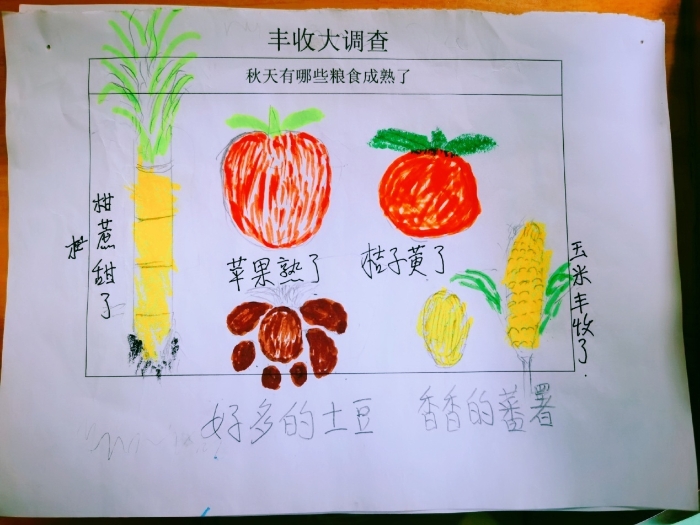 丰收大调查
秋天有哪些粮食成熟了
柑蔗甜了
苹果熟了
桔子黄了
玉米丰收了.
好多的土豆
香香的蕃署